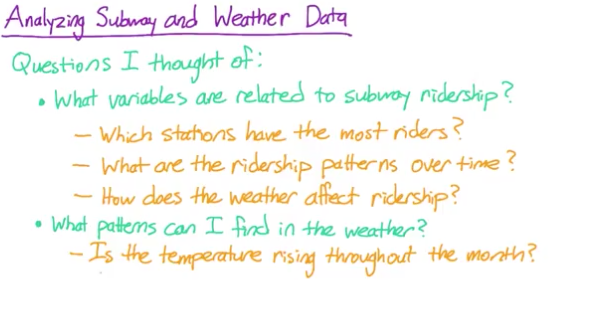 Analyzing Subway and Weather Data
Questions I thought of:
• What variables are related to subway ridership?
– Which stations have the most riders?
– What are the ridership patterns over time?
– How does the weather affect ridership?
• What patterns can I find in the weather?
– Is the temperature rising throughout the month?